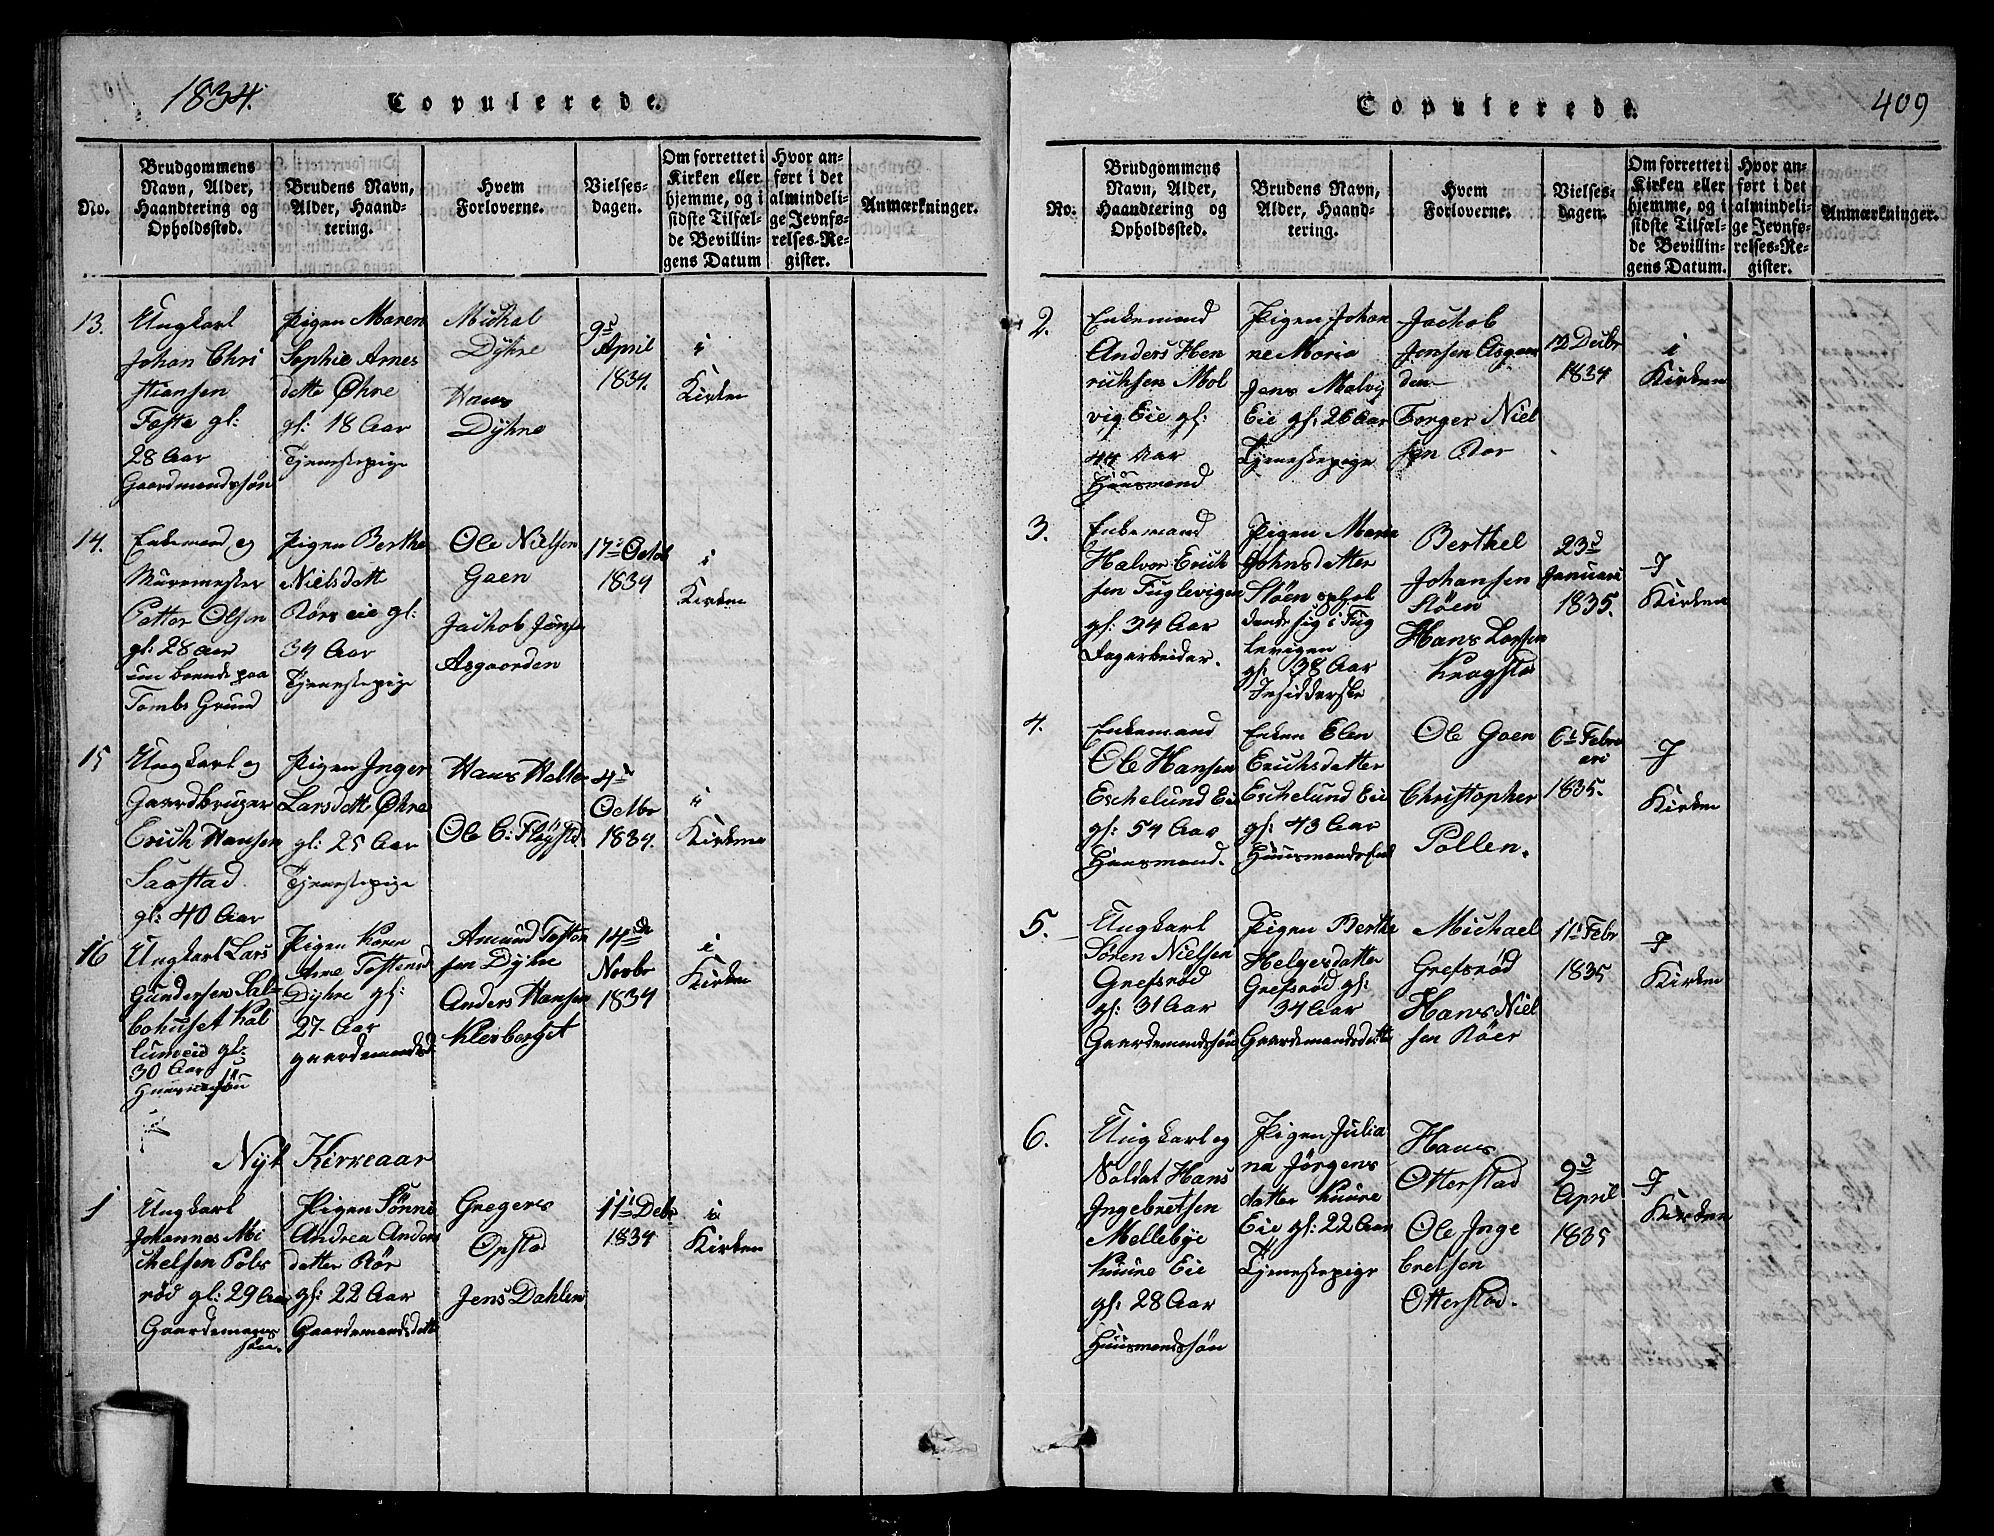 1834.
Copulerede.
No.
Brudgommens
Navn, Alder,
Haandtering og
Opholdssted.
Brudens Navn,
Alder, Haand-
tering.
Hvem
Forloverne.
Vielses-
dagen.
Om forrettet i
Kirken eller
hjemme, og i
sidste Tilfæl-
de Bevillin-
gens Datum
Hvor an-
ført i det
almindeli-
ge Jevnfø-
relses-Re-
gister.
Anmærkninger.
13.
Ungkarl
Johan Chri
stiansen
Tofte gl:
28 Aar
Gaardmandssøn
Pigen Maren
Sophie Arnes
datte Øhre
gl: 18 Aar
Tjenestepige
Michal
Dÿhre
Hans
Dÿhre
9d
April
1834.
i
Kirken
14.
Enkemand og
Muremester
Petter Olsen
gl: 28 Aar
boende paa
Tombs Grund
Pigen Berthe
Nielsdatt
Rørs eie gl:
34 Aar
Tjenestepige
Ole Nielsen
Gaen
Jachob Jensen
Asgaarden
17d Octob
1834
i
Kirken
15
Ungkarl og
Gaardbruger
Erich Hansen
Saastad
gl: 40 Aar
Pigen Inger
Larsdatt Øhre
gl: 25 Aar
Tjenestepige
Hans Holte
Ole C: Fløÿstd.
4d
Octbr
1834.
i
Kirken
16
Ungkarl Lars
Gundersen Sal-
bohuset Kal
lumeie gl:
30 Aar
Pigen Karen
Arne Tostensd
Dÿhre gl:
27 Aar
gaardemandsd
Amund Tosten
sen Dÿhre
Anders Hansen
Kleberget
14de
Novbr
1834
i
Kirken
Nÿt Kirkeaar
1
Ungkarl
Johannes Mi
chelsen Pobs
rød gl: 29 Aar
Gaardemans
søn.
Pigen Sønni
Andrea Anders
datter Rør
gl: 22 Aar
Gaardemandsdatt
Gregers
Opsta
Jens Dahlen
11d Debr
1834
i
Kirken
Copulerede.
409
No.
Brudgommens
Navn, Alder,
Haandtering og
Opholdssted.
Brudens Navn,
Alder, Haand-
tering.
Hvem
Forloverne.
Vielses-
Dagen.
Om forrettet i
Kirken eller
hjemme, og i
sidste Tilfæl-
de Bevillin-
gens Datum.
Hvor an-
ført i det
almindeli-
ge Jevnfø-
relses-Re-
gister.
Anmærkninger.
2.
Enkemand
Anders Hen
richsen Mol
vig Eie gl:
44 Aar
Huusmand
Pigen Johan
ne Maria
Jens Malvig
Eie gl: 26 Aar
Tjenestepige
Jachob
Jensen Asgaar
den
Torger Niel
sen Roer
12 Decbr
1834
i
Kirken
3.
Enkemand
Halvor Erich
sen Fuglevigen
gl: 34 Aar
Dagarbeider.
Pigen Maria
Johnsdatter
Støen ophol
dende sig i Fug
levigen
gl: 38 Aar
Insidderske
Berthel
Johansen
Støen
Hans Larsen
Kragsta
23d
Januari
1835.
I
Kirken
4.
Enkemand
Ole Hansen
Eschelund Eie
gl: 54 Aar
Huusmand.
Enken Elen
Erichsdatter
Eschelund Eie
gl: 43 Aar
Ole Gaen
Christopher
Pollen.
6d Febru
ari
1835.
I
Kirken
5.
Ungkarl
Søren Nielsen
Grefsrød
gl: 31 Aar
Gaardemandssøn
Pigen Berthe
Helgesdatter
Grefsrød gl:
34 Aar
Gaardemandsdatter
Michael
Grefsrød
Hans Niel
sen Røer
11d Febr
1835
I
Kirken
6.
Ungkarl og
Soldat Hans
Ingebretsen
Mellebÿe
Kuure Eie
gl: 28 Aar
Huusmandssøn
Pigen Julia
na Jørgens
datter Kuure
Eie gl: 22 Aar
Tjenestepige
Hans
Otterstad
Ole Inge
bretsen
Otterstad.
2d
April
1835
I
Kirken